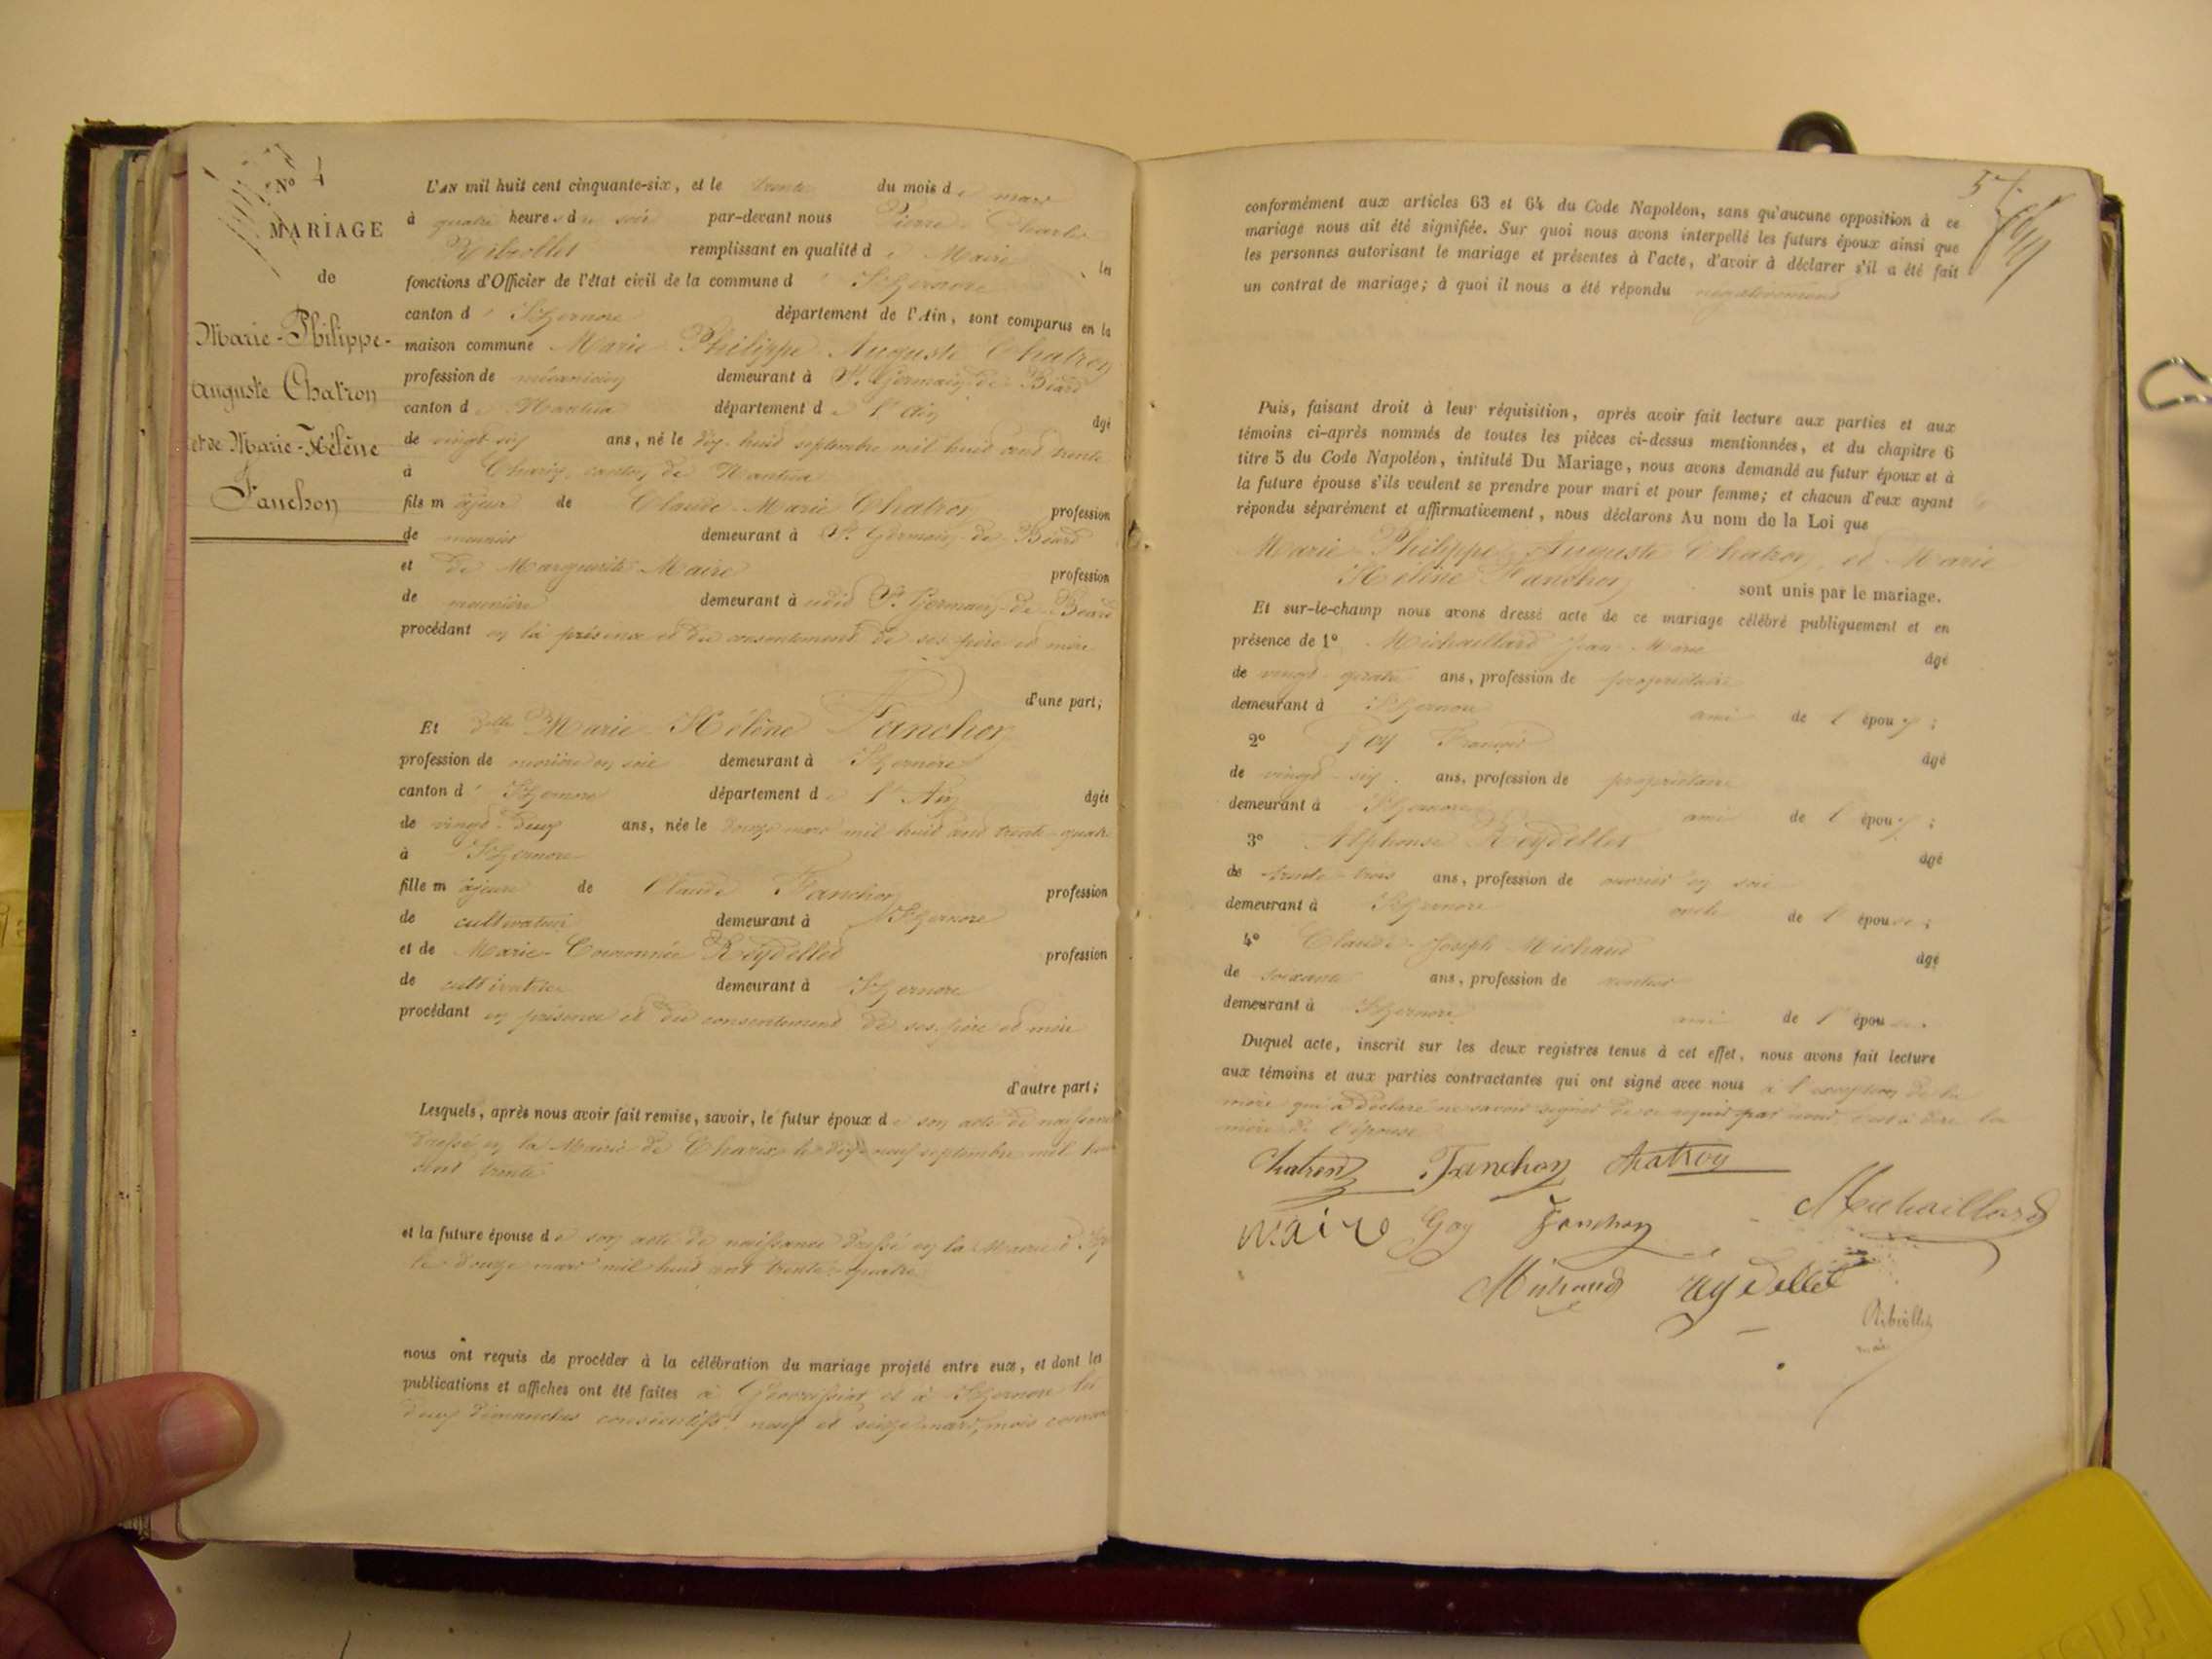 N° 4
MARIAGE
de
Marie-Philippe-
Auguste Chatron
et de Marie-Hélène
Fanchon
L'AN mil huit cent cinquante-six, et le trente du mois de mars
à quatre heures du soir par-devant nous Pierre Charles
Ribrollet remplissant en qualité de Maire les
fonctions d'Officier de l'état civil de la commune d' Izernore
canton d' Izernore département de l'Ain, sont comparus en la
maison commune Marie Philippe Auguste Chatron
profession de mécanicien demeurant à St Germain-de-Béard
canton de Nantua département de l'Ain âgé
de vingt-six ans, né le dix-huit septembre mil huit cent trente
à Charix, canton de Nantua
fils majeur de Claude-Marie Chatron profession
de meunier demeurant à St Germain-de-Béard
et de Marguerite Maire profession
de meunière demeurant à udit St Germain-de-Béard
procédant en la présence et du consentement de ses père et mère
d'une part;
Et Delle Marie Hélène Fanchon
profession de ouvrière en soie demeurant à Izernore
canton d' Izernore département de l'Ain âgée
de vingt-deux ans, née le douze mars mil huit cent trente-quatre
à Izernore
fille majeure de Claude Fanchon profession
de cultivateur demeurant à Izernore
et de Marie-Couronnée Reydellet profession
de cultivatrice demeurant à Izernore
procédant en présence et du consentement de ses père et mère
d'autre part;
Lesquels, après nous avoir fait remise, savoir, le futur époux de son acte de naissance
dressé en la Mairie de Charix le dix-neuf septembre mil huit
cent trente
et la future épouse de son acte de naissance dressé en la Mairie d'Iz
le douze mars mil huit cent trente-quatre
nous ont requis de procéder à la célébration du mariage projeté entre eux, et dont les
publications et affiches ont été faites à Géovreissiat et à Izernore les
deux dimanches consécutifs neuf et seize mars, mois courant
57
conformément aux articles 63 et 64 du Code Napoléon, sans qu'aucune opposition à ce
mariage nous ait été signifiée. Sur quoi nous avons interpellé les futurs époux ainsi que
les personnes autorisant le mariage et présentes à l'acte, d'avoir à déclarer s'il a été fait
un contrat de mariage; à quoi il nous a été répondu négativement
Puis, faisant droit à leur réquisition, après avoir fait lecture aux parties et aux
témoins ci-après nommés de toutes les pièces ci-dessus mentionnées, et du chapitre 6
titre 5 du Code Napoléon, intitulé Du Mariage, nous avons demandé au futur époux et à
la future épouse s'ils veulent se prendre pour mari et pour femme; et chacun d'eux ayant
répondu séparément et affirmativement, nous déclarons Au nom de la Loi que
Marie Philippe Auguste Chatron et Marie
Hélène Fanchon sont unis par le mariage.
Et sur-le-champ nous avons dressé acte de ce mariage célébré publiquement et en
présence de 1° Michaillard Jean Marie âgé
de vingt-quatre ans, profession de propriétaire
demeurant à Izernore ami de l'époux;
2° Goy François âgé
de vingt-six ans, profession de propriétaire
demeurant à Izernore ami de l'époux;
3° Alphonse Reydellet âgé
de trente-trois ans, profession de ouvrier en soie
demeurant à Izernore oncle de l'épouse;
4° Claude-Joseph Michaud âgé
de soixante ans, profession de rentier
demeurant à Izernore ami de l'épouse.
Duquel acte, inscrit sur les deux registres tenus à cet effet, nous avons fait lecture
aux témoins et aux parties contractantes qui ont signé avec nous à l'exception de la
mère qui a déclaré ne savoir signer de ce requise par nous, c'est à dire la
mère de l'épouse
Chatron Fanchon Chatron
Maire Goy Fanchon Michaillard
Michaud Reydellet
Ribrollet
maire